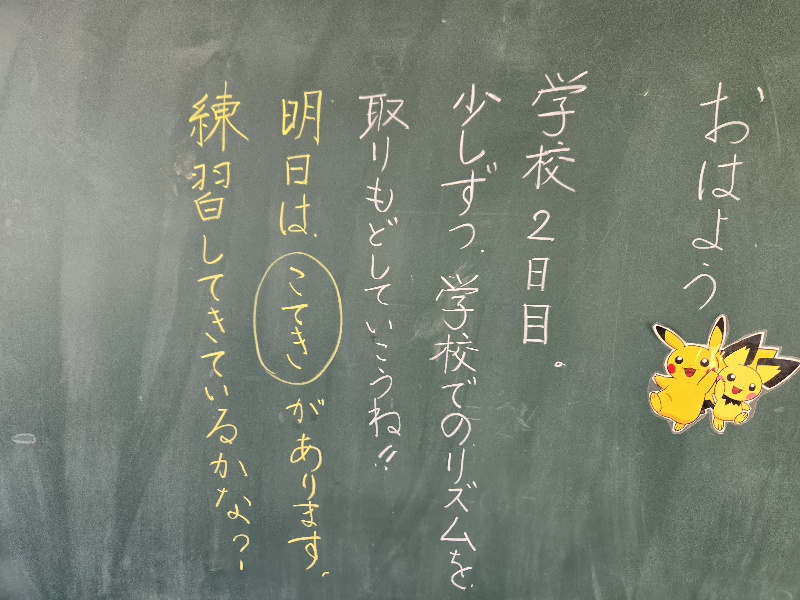 おはよう
学校2日目。
少しずつ、学校でのリズムを
取りもどしていこうね!!
明日は、こてきがあります。
練習してきているかな?